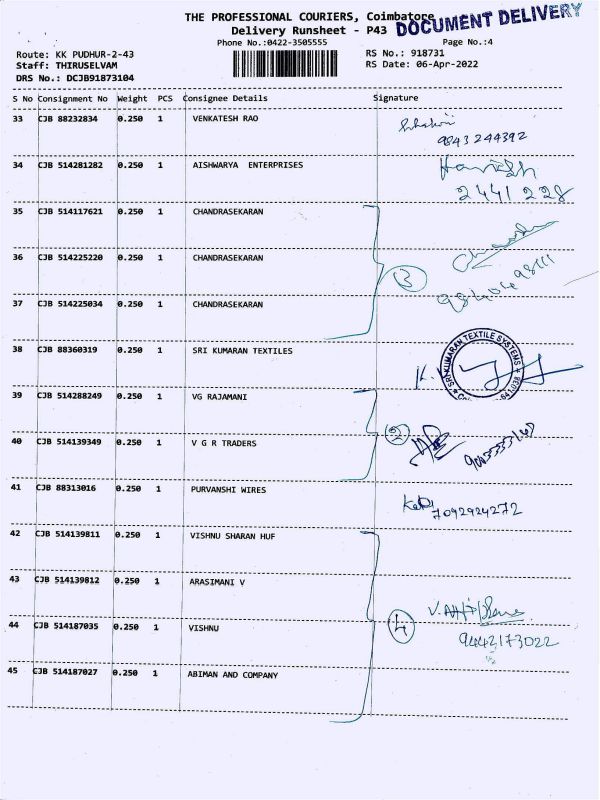 THE PROFESSIONAL COURIERS, Coimbatore
DOCUMENT DELIVERY
Delivery Runsheet - P43
Phone No.:0422-3505555
Page No.:4
Route: KK PUDHUR-2-43
RS No.: 918731
Staff: THIRUSELVAM
RS Date: 06-Apr-2022
DRS No.: DCJB91873104
S No Consignment No Weight PCS Consignee Details Signature
33 CJB 88232834 0.250 1 VENKATESH RAO
9843244392
34 CJB 514281282 0.250 1 AISHWARYA ENTERPRISES Harish
2441228
35 CJB 514117621 0.250 1 CHANDRASEKARAN
36 CJB 514225220 0.250 1 CHANDRASEKARAN
3
37 CJB 514225034 0.250 1 CHANDRASEKARAN
38 CJB 88360319 0.250 1 SRI KUMARAN TEXTILES
SRI KUMARAN TEXTILE SYSTEMS
641 038
39 CJB 514288249 0.250 1 VG RAJAMANI
2
40 CJB 514139349 0.250 1 V G R TRADERS
41 CJB 88313016 0.250 1 PURVANSHI WIRES
7092924272
42 CJB 514139811 0.250 1 VISHNU SHARAN HUF
43 CJB 514139812 0.250 1 ARASIMANI V
44 CJB 514187035 0.250 1 VISHNU 4
9442173022
45 CJB 514187027 0.250 1 ABIMAN AND COMPANY